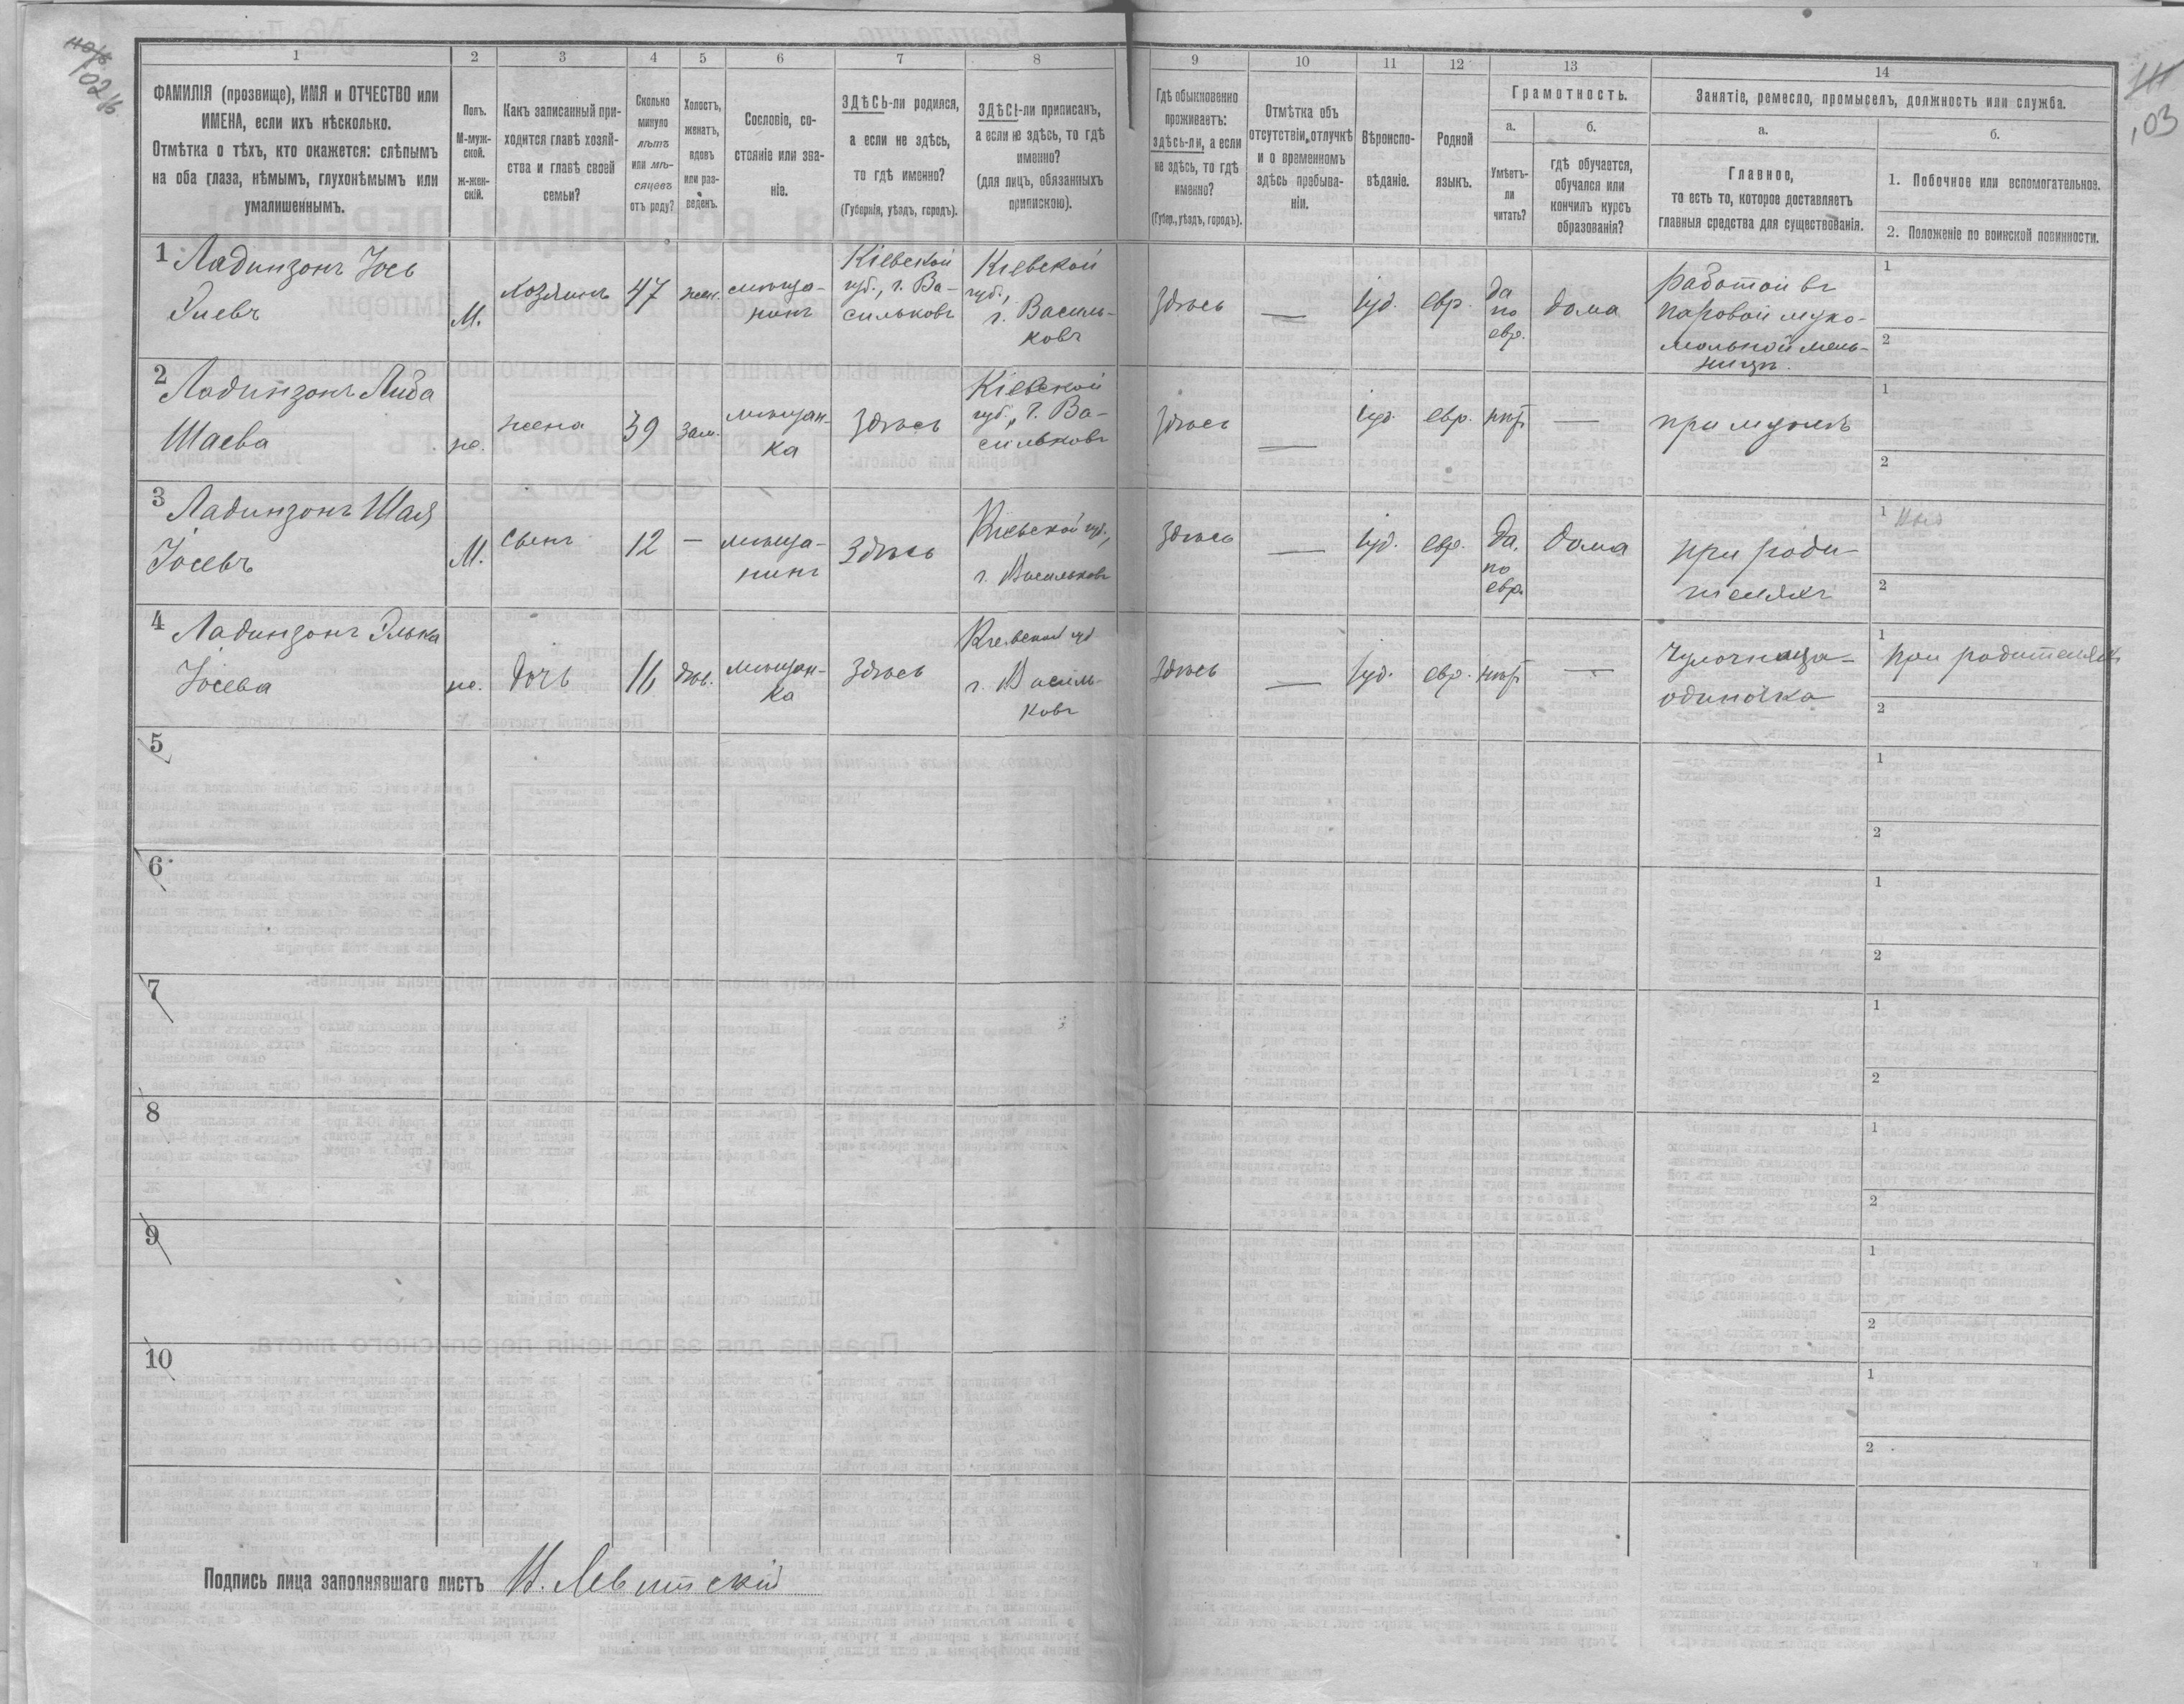 1 2 3 4 5 6 7 8 9 10 11 12 13 14
ФАМИЛІЯ (прозвище), ИМЯ и ОТЧЕСТВО или
ИМЕНА, если ихъ нѣсколько.
Отмѣтка о тѣхъ, кто окажется: слѣпымъ
на оба глаза, нѣмымъ, глухонѣмымъ или
умалишеннымъ.
Полъ.
М-муж-
ской.
ж-жен-
скій.
Какъ записанный при-
ходится главѣ хозяй-
ства и главѣ своей
семьи?
Сколько
минуло
лѣтъ
или мѣ-
сяцевъ
отъ роду?
Холостъ,
женатъ,
вдовъ
или раз-
веденъ.
Сословіе, со-
стояніе или зва-
ніе.
ЗДѢСЬ-ли родился,
а если не здѣсь,
то гдѣ именно?
(Губернія, уѣздъ, городъ).
ЗДѢСЬ-ли приписанъ,
а если не здѣсь, то гдѣ
именно?
(для лицъ, обязанныхъ
припискою).
Гдѣ обыкновенно
проживаетъ:
здѣсь-ли, а если
не здѣсь, то гдѣ
именно?
(Губер., уѣздъ, городъ).
Отмѣтка объ
отсутствіи, отлучкѣ
и о временномъ
здѣсь пребыва-
ніи.
Вѣроиспо-
вѣданіе.
Родной
языкъ.
Грамотность.
а.
Умѣетъ-
ли
читать?
б.
гдѣ обучается,
обучался или
кончилъ курсъ
образованія?
Занятіе, ремесло, промыселъ, должность или служба.
а.
Главное,
то есть то, которое доставляетъ
главныя средства для существованія.
б.
1. Побочное или вспомогательное.
2. Положеніе по воинской повинности.
1 Ладинзонъ Іось
М.
Хозяинъ
47
жен.
мѣща-
нинъ
Кіевской
губ., г. Ва-
сильковъ
Кіевской
губ.,
г. Василь-
ковъ
здѣсь
—
іуд.
евр.
да
по
евр.
дома
работой въ
паровой муко-
мольной мель-
ницѣ
1
2
2 Ладинзонъ Либа
Шаева
ж.
жена
39
зам.
мѣщан-
ка
здѣсь
Кіевской
губ., г. Ва-
сильковъ
здѣсь
—
іуд.
евр.
нѣт
—
при мужѣ
1
2
3 Ладинзонъ Шая
Іосевъ
М.
сынъ
12
—
мѣща-
нинъ
здѣсь
Кіевской губ.,
г. Васильковъ
здѣсь
—
іуд.
евр.
да,
по
евр.
дома
при роди-
теляхъ
1
2
4 Ладинзонъ Элька
Іосева
ж.
дочь
16
дѣв.
мѣщан-
ка
здѣсь
Кіевской губ
г. Василь-
ковъ
здѣсь
—
іуд.
евр.
нѣт
—
чулочница-
одиночка
1 при родителяхъ
2
5
1
2
6
1
2
7
1
2
8
1
2
9
1
2
10
1
2
Подпись лица заполнявшаго листъ Н. Левитскій